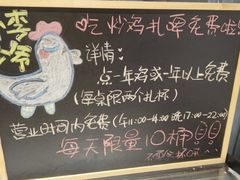 李爷
吃炒鸡扎啤免费啦!
详情:
点一单鸡或一单以上免费
(每桌限两个扎杯)
营业时间内免费(午11:00-14:00 晚17:00-22:00)
每天限量10桶!!!